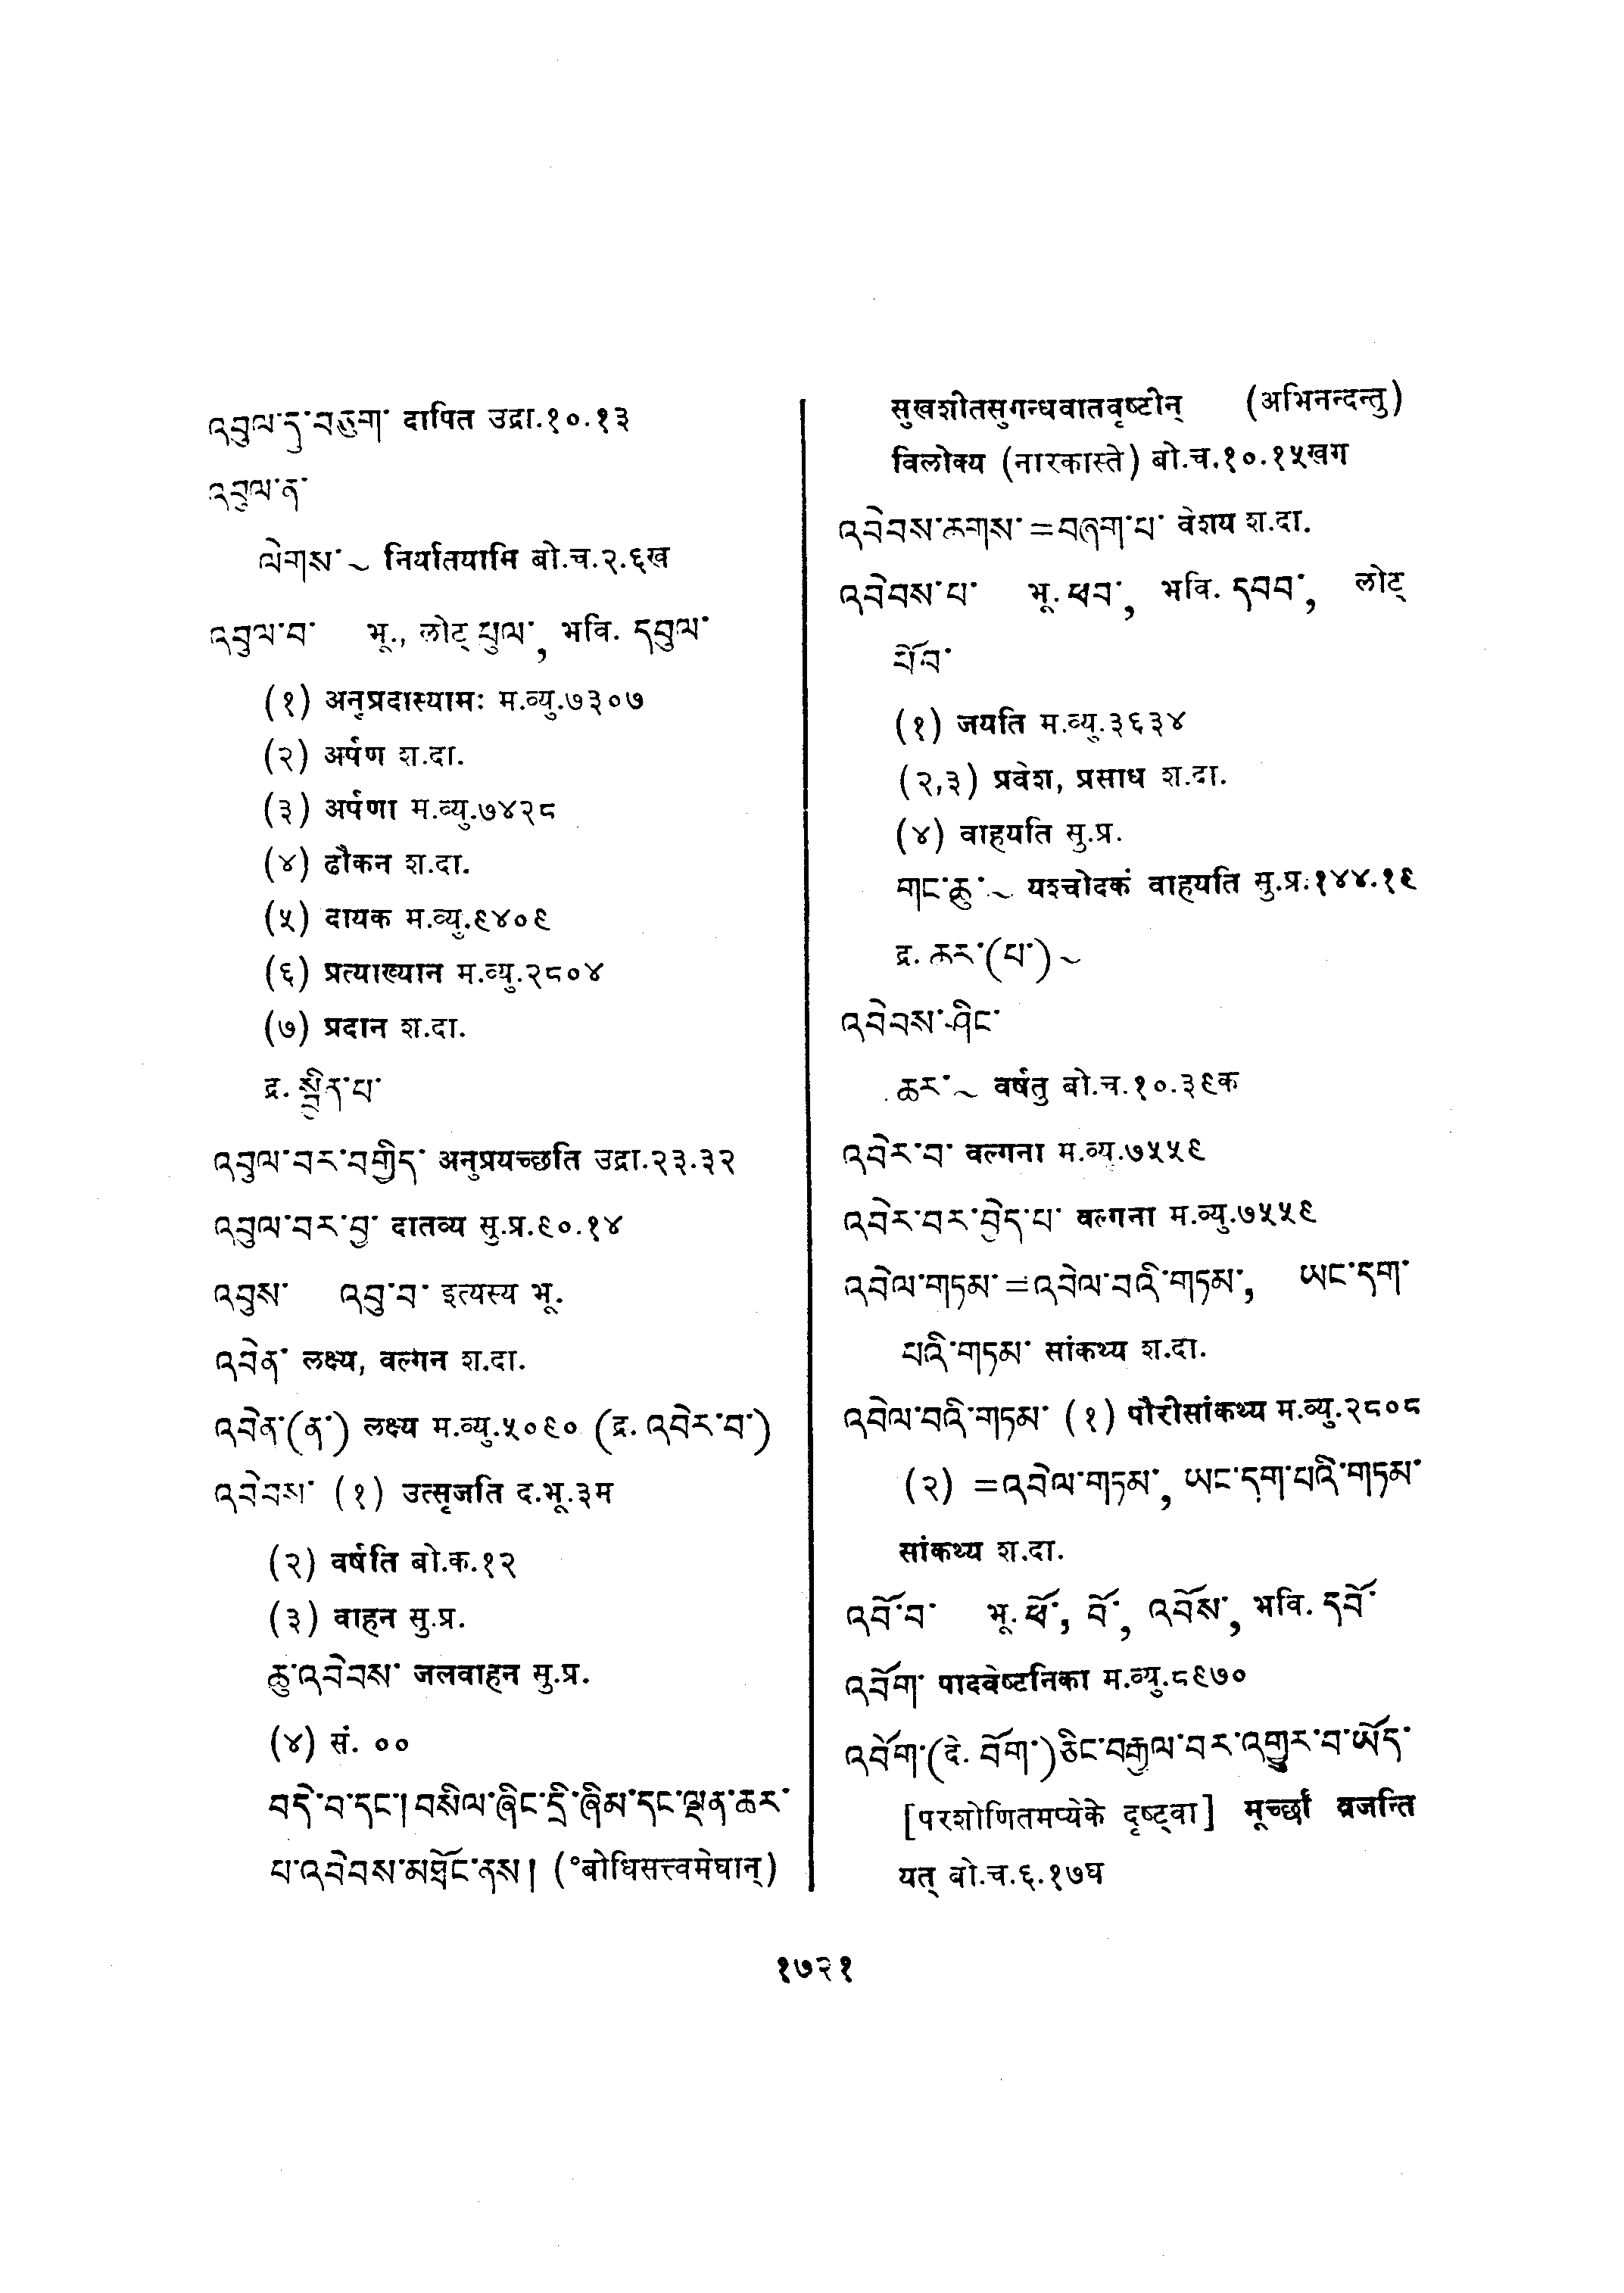 འབུལ་དུ་བཅུག་ दापित उद्रा.१०.१३
འབུལ་ན་
ལེགས་ ~ निर्यातयामि बो.च.२.६ख
འབུལ་བ་ भू., लोट् ཕུལ་, भवि. དབུལ་
(१) अनुप्रदास्यामः म.व्यु.७३०७
(२) अर्पण श.दा.
(३) अर्पणा म.व्यु.७४२८
(४) ढौकन श.दा.
(५) दायक म.व्यु.९४०९
(६) प्रत्याख्यान म.व्यु.२८०४
(७) प्रदान श.दा.
द्र. སྦྱིན་པ་
འབུལ་བར་བགྱིད་ अनुप्रयच्छति उद्रा.२३.३२
འབུལ་བར་བྱ་ दातव्य सु.प्र.९०.१४
འབུས་ འབུ་བ་ इत्यस्य भू.
འབེན་ लक्ष्य, वल्गन श.दा.
འབེན་(ན་) लक्ष्य म.व्यु.५०९० (द्र. འབེར་བ་)
འབེབས་ (१) उत्सृजति द.भू.३म
(२) वर्षति बो.क.१२
(३) वाहन सु.प्र.
ཆུ་འབེབས་ जलवाहन सु.प्र.
(४) सं. ००
བདེ་བ་དང་། བསིལ་ཞིང་དྲི་ཞིམ་དང་ལྡན་ཆར་
པ་འབེབས་མཐོང་ནས། (°बोधिसत्त्वमेघान्)
सुखशीतसुगन्धवातवृष्टीन् (अभिनन्दन्तु)
विलोक्य (नारकास्ते) बो.च.१०.१५खग
འབེབས་ཆགས་ =བཞག་པ་ वेशय श.दा.
འབེབས་པ་ भू. ཕབ་, भवि. དབབ་, लोट्
ཕོབ་
(१) जयति म.व्यु.३६३४
(२,३) प्रवेश, प्रसाध श.दा.
(४) वाहयति सु.प्र.
གང་ཆུ་ ~ यश्चोदकं वाहयति सु.प्र.१४४.१९
द्र. ཆར་(པ་) ~
འབེབས་ཤིང་
ཆར་ ~ वर्षतु बो.च.१०.३९क
འབེར་བ་ वल्गना म.व्यु.७५५९
འབེར་བར་བྱེད་པ་ वल्गना म.व्यु.७५५९
འབེལ་གཏམ་ =འབེལ་བའི་གཏམ་, ཡང་དག་
པའི་གཏམ་ सांकथ्य श.दा.
འབེལ་བའི་གཏམ་ (१) पौरीसांकथ्य म.व्यु.२८०८
(२) =འབེལ་གཏམ་, ཡང་དག་པའི་གཏམ་
सांकथ्य श.दा.
འབོ་བ་ भू. ཕོ་, བོ་, འབོས་, भवि. དབོ་
འབོག་ पादवेष्टनिका म.व्यु.८९७०
འབོག་(दे. བོག་)ཅིང་བརྒྱལ་བར་འགྱུར་བ་ཡོད་
[परशोणितमप्येके दृष्ट्वा] मूर्च्छां व्रजन्ति
यत् बो.च.६.१७घ
१७२१